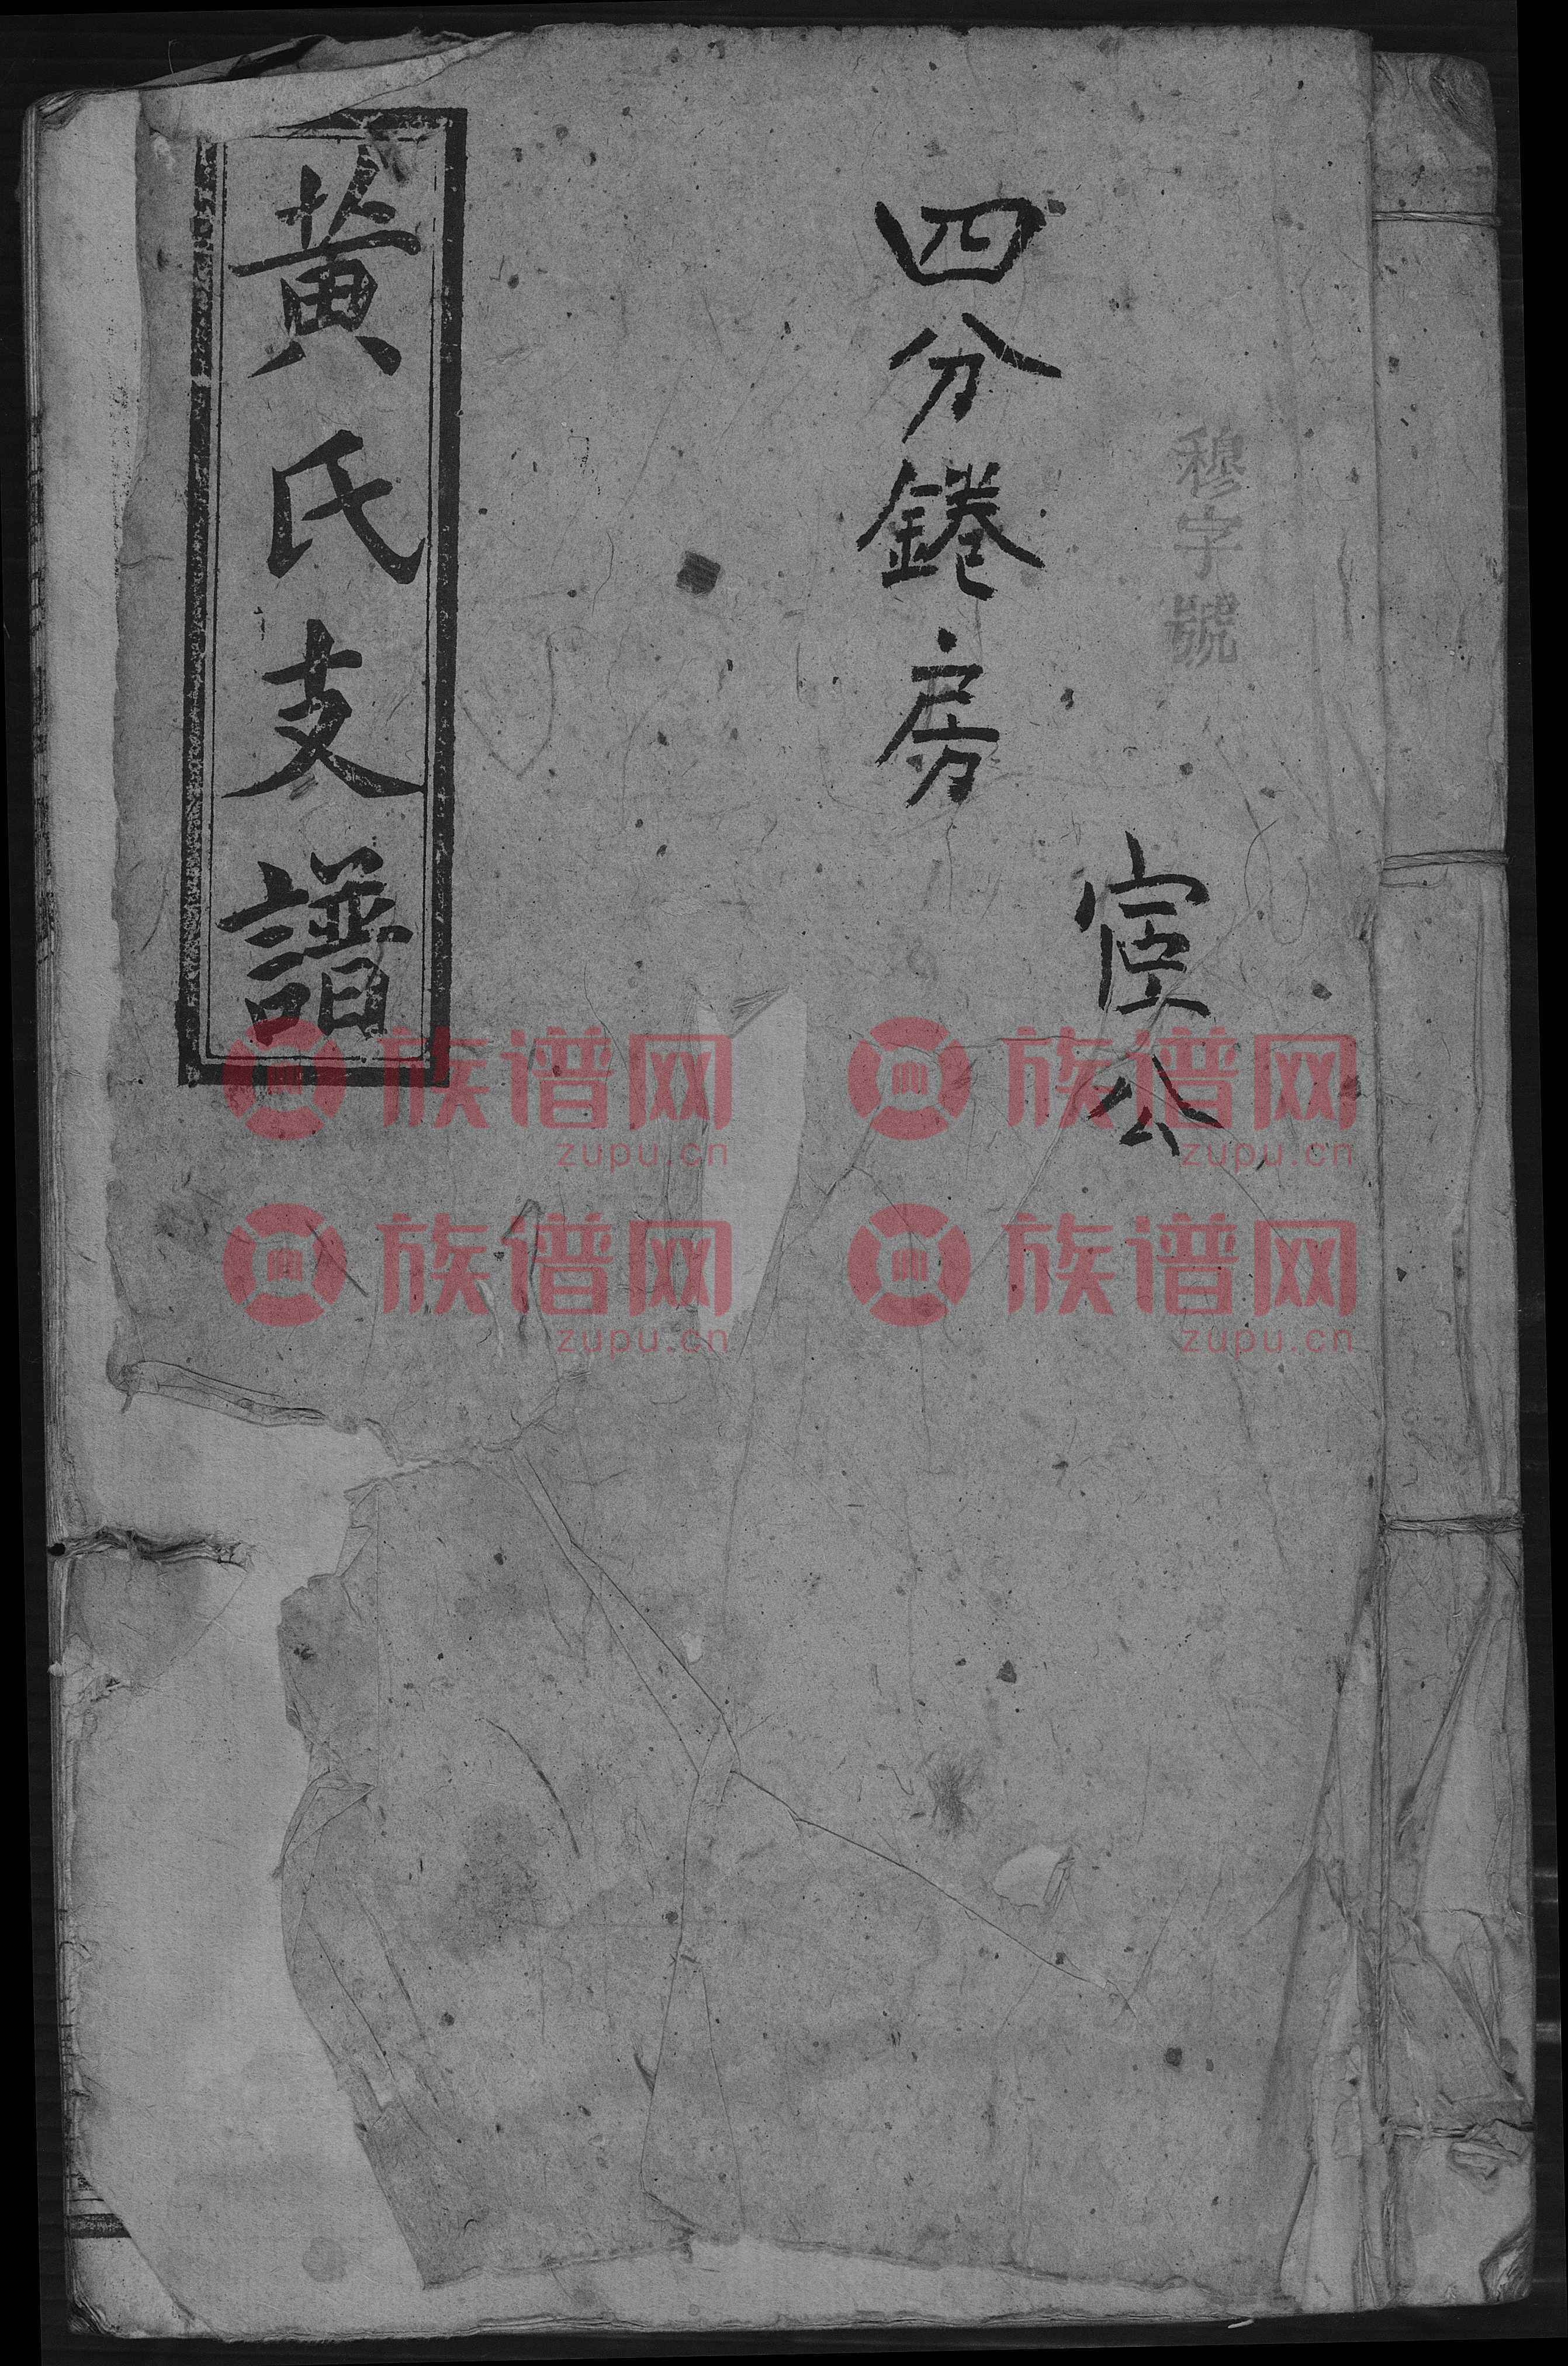 穆字號
宦公
四分錈房
黄氏支譜
族谱网
zupu.cn
族谱网
zupu.cn
族谱网
zupu.cn
族谱网
zupu.cn